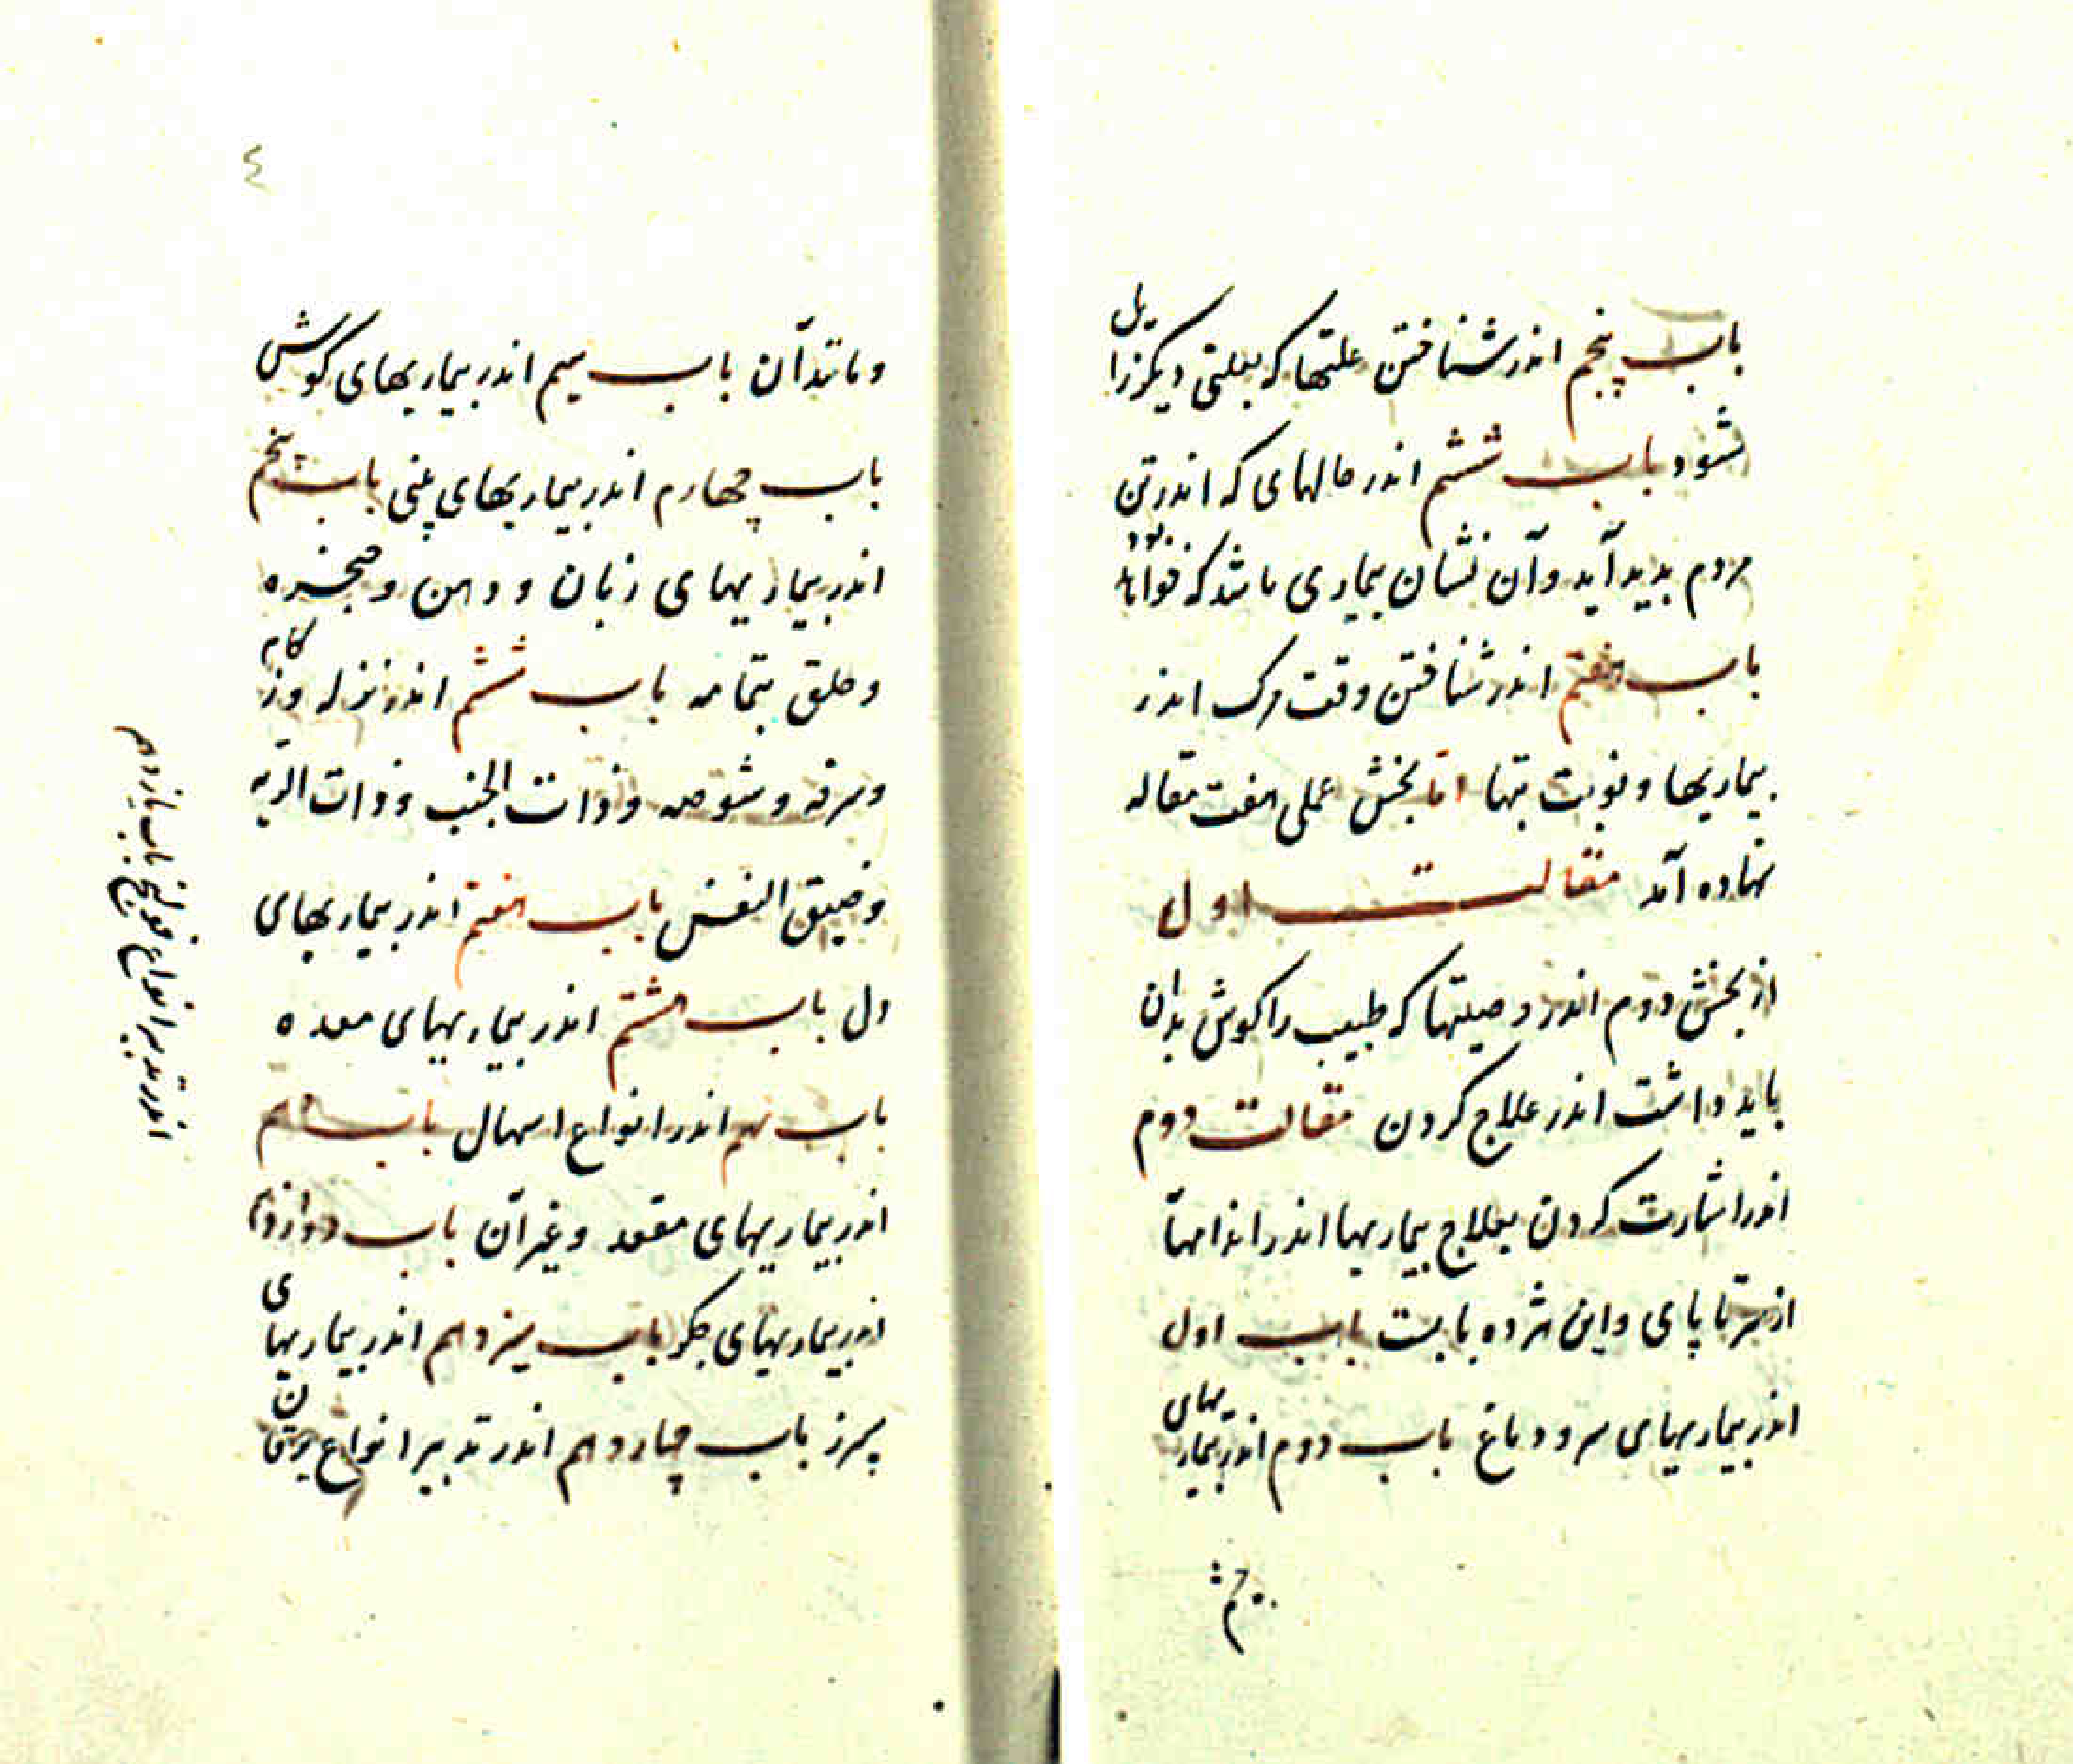 باب پنجم اندر شناختن علتها که بعلتی دیگر زایل
شود باب ششم اندر حالهای که اندر تن
مردم بدید آید و آن نشان بیماری باشد که خواهد بود
باب هفتم اندر شناختن وقت مرک اندر
بیماریها و نوبت تبها اما بخش عملی هفت مقاله
نهاده آمد مقالت اول
از بخش دوم اندر وصیتها که طبیب را کوش بدان
باید داشت اندر علاج کردن مقالت دوم
اندر اشارت کردن بعلاج بیماریها اندر اندامها
از سر تا پای و این هژده بابست باب اول
اندر بیماریهای سر و دماغ باب دوم اندر بیماریهای
چم
٤
و مانند آن باب سیم اندر بیماریهای کوش
باب چهارم اندر بیماریهای بینی باب پنجم
اندر بیماریهای زبان و دهن و حنجره
و حلق بتمامه باب ششم اندر نزله و زکام
و سرفه و شوصه و ذات الجنب و ذات الریه
و ضیق النفس باب هفتم اندر بیماریهای
دل باب هشتم اندر بیماریهای معده
باب نهم اندر انواع اسهال باب دهم
اندر بیماریهای مقعد و غیر آن باب دوازدهم
اندر بیماریهای جکر باب سیزدهم اندر بیماریهای
سپرز باب چهاردهم اندر تدبیر انواع یرقان
اندر تدبیر انواع قولنج باب یازدهم